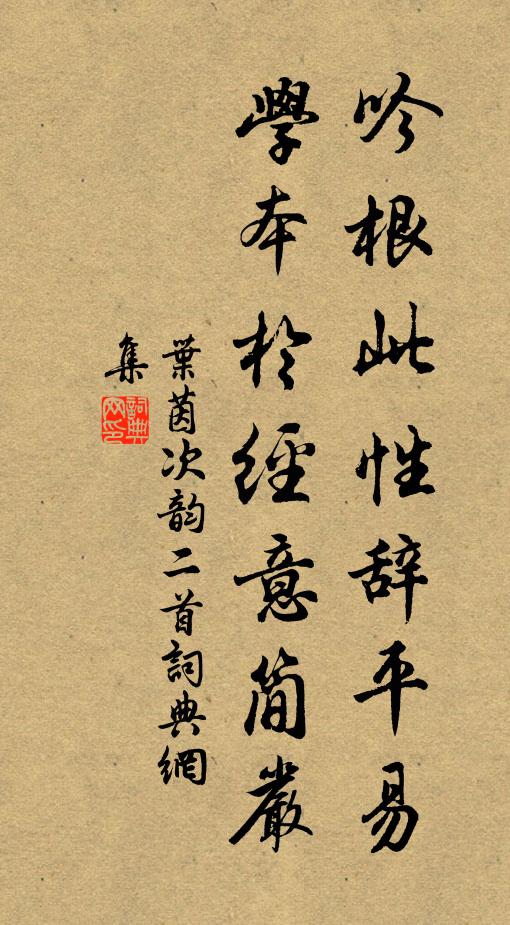 吟根此性辞平易
學本於經意簡嚴
葉茵次韵二首詞典網
集
詞典网印